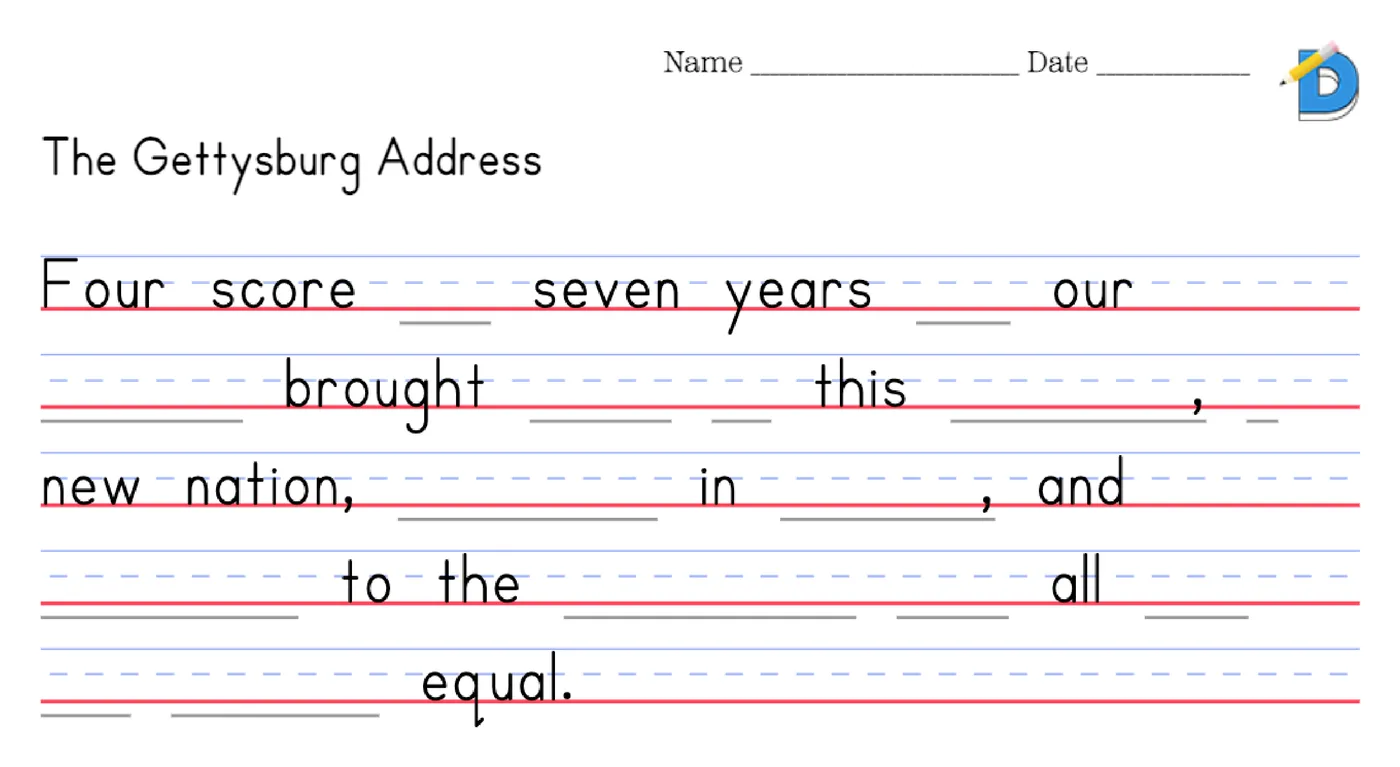 Name ____________________ Date ___________
The Gettysburg Address
Four score ____ seven years ____ our
________ brought ______ __ this __________, _
new nation, __________ in ________, and
__________ to the ___________ ____ all ____
____ ________ equal.